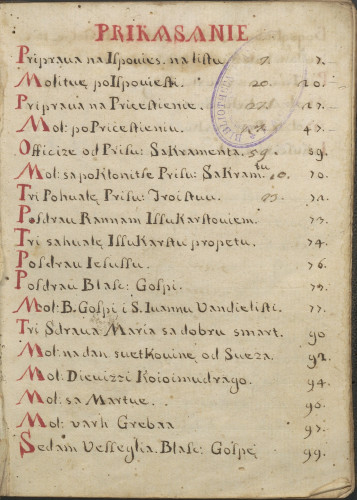 PRIKASANIE
Priprava na Ispovies. na listu 7. 7.
Molitve po Ispoviesti. 20. 20.
Priprava na Pricestienie. 27.
Mol: po Pricestieniu. 47.
Officize od Prisu: Sakramenta. 59. 59.
Mol: sa poklonitse Prisu: Sakram:tu 70.
Tri Pohvale Prisu: Troistvu. 73. 72.
Posdrav Rannam Issukarstoviem. 73.
Tri sahvale Issukarstu propetu. 74.
Posdrav Iesussu. 76.
Posdrav Blasc: Gospi. 77.
Mol: B. Gospi i S. Ivannu Vandielisti. 77.
Tri Sdrava Maria sa dobru smart. 90
Mol: na dan svetkovine od Sveza. 92.
Mol: Dievizzi Koioimudrago. 94.
Mol: sa Martve. 96.
Mol: varh Grebaa 97.
Sedam Vesseglia. Blasc: Gospe 99.
BIBLIOTHECA